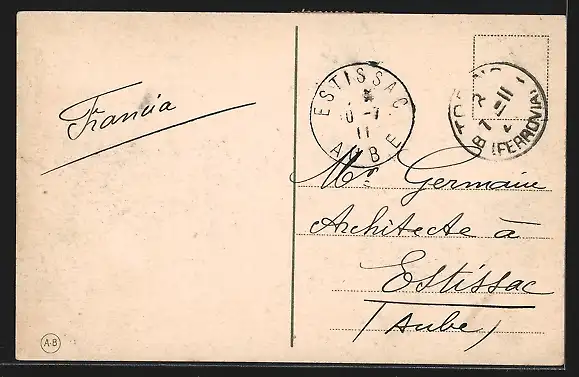 Francia
ESTISSAC
10 -7
11
AUBE
TORINO
(FERROVIA)
Mr Germain
Architecte à
Estissac
(Aube)
A·B